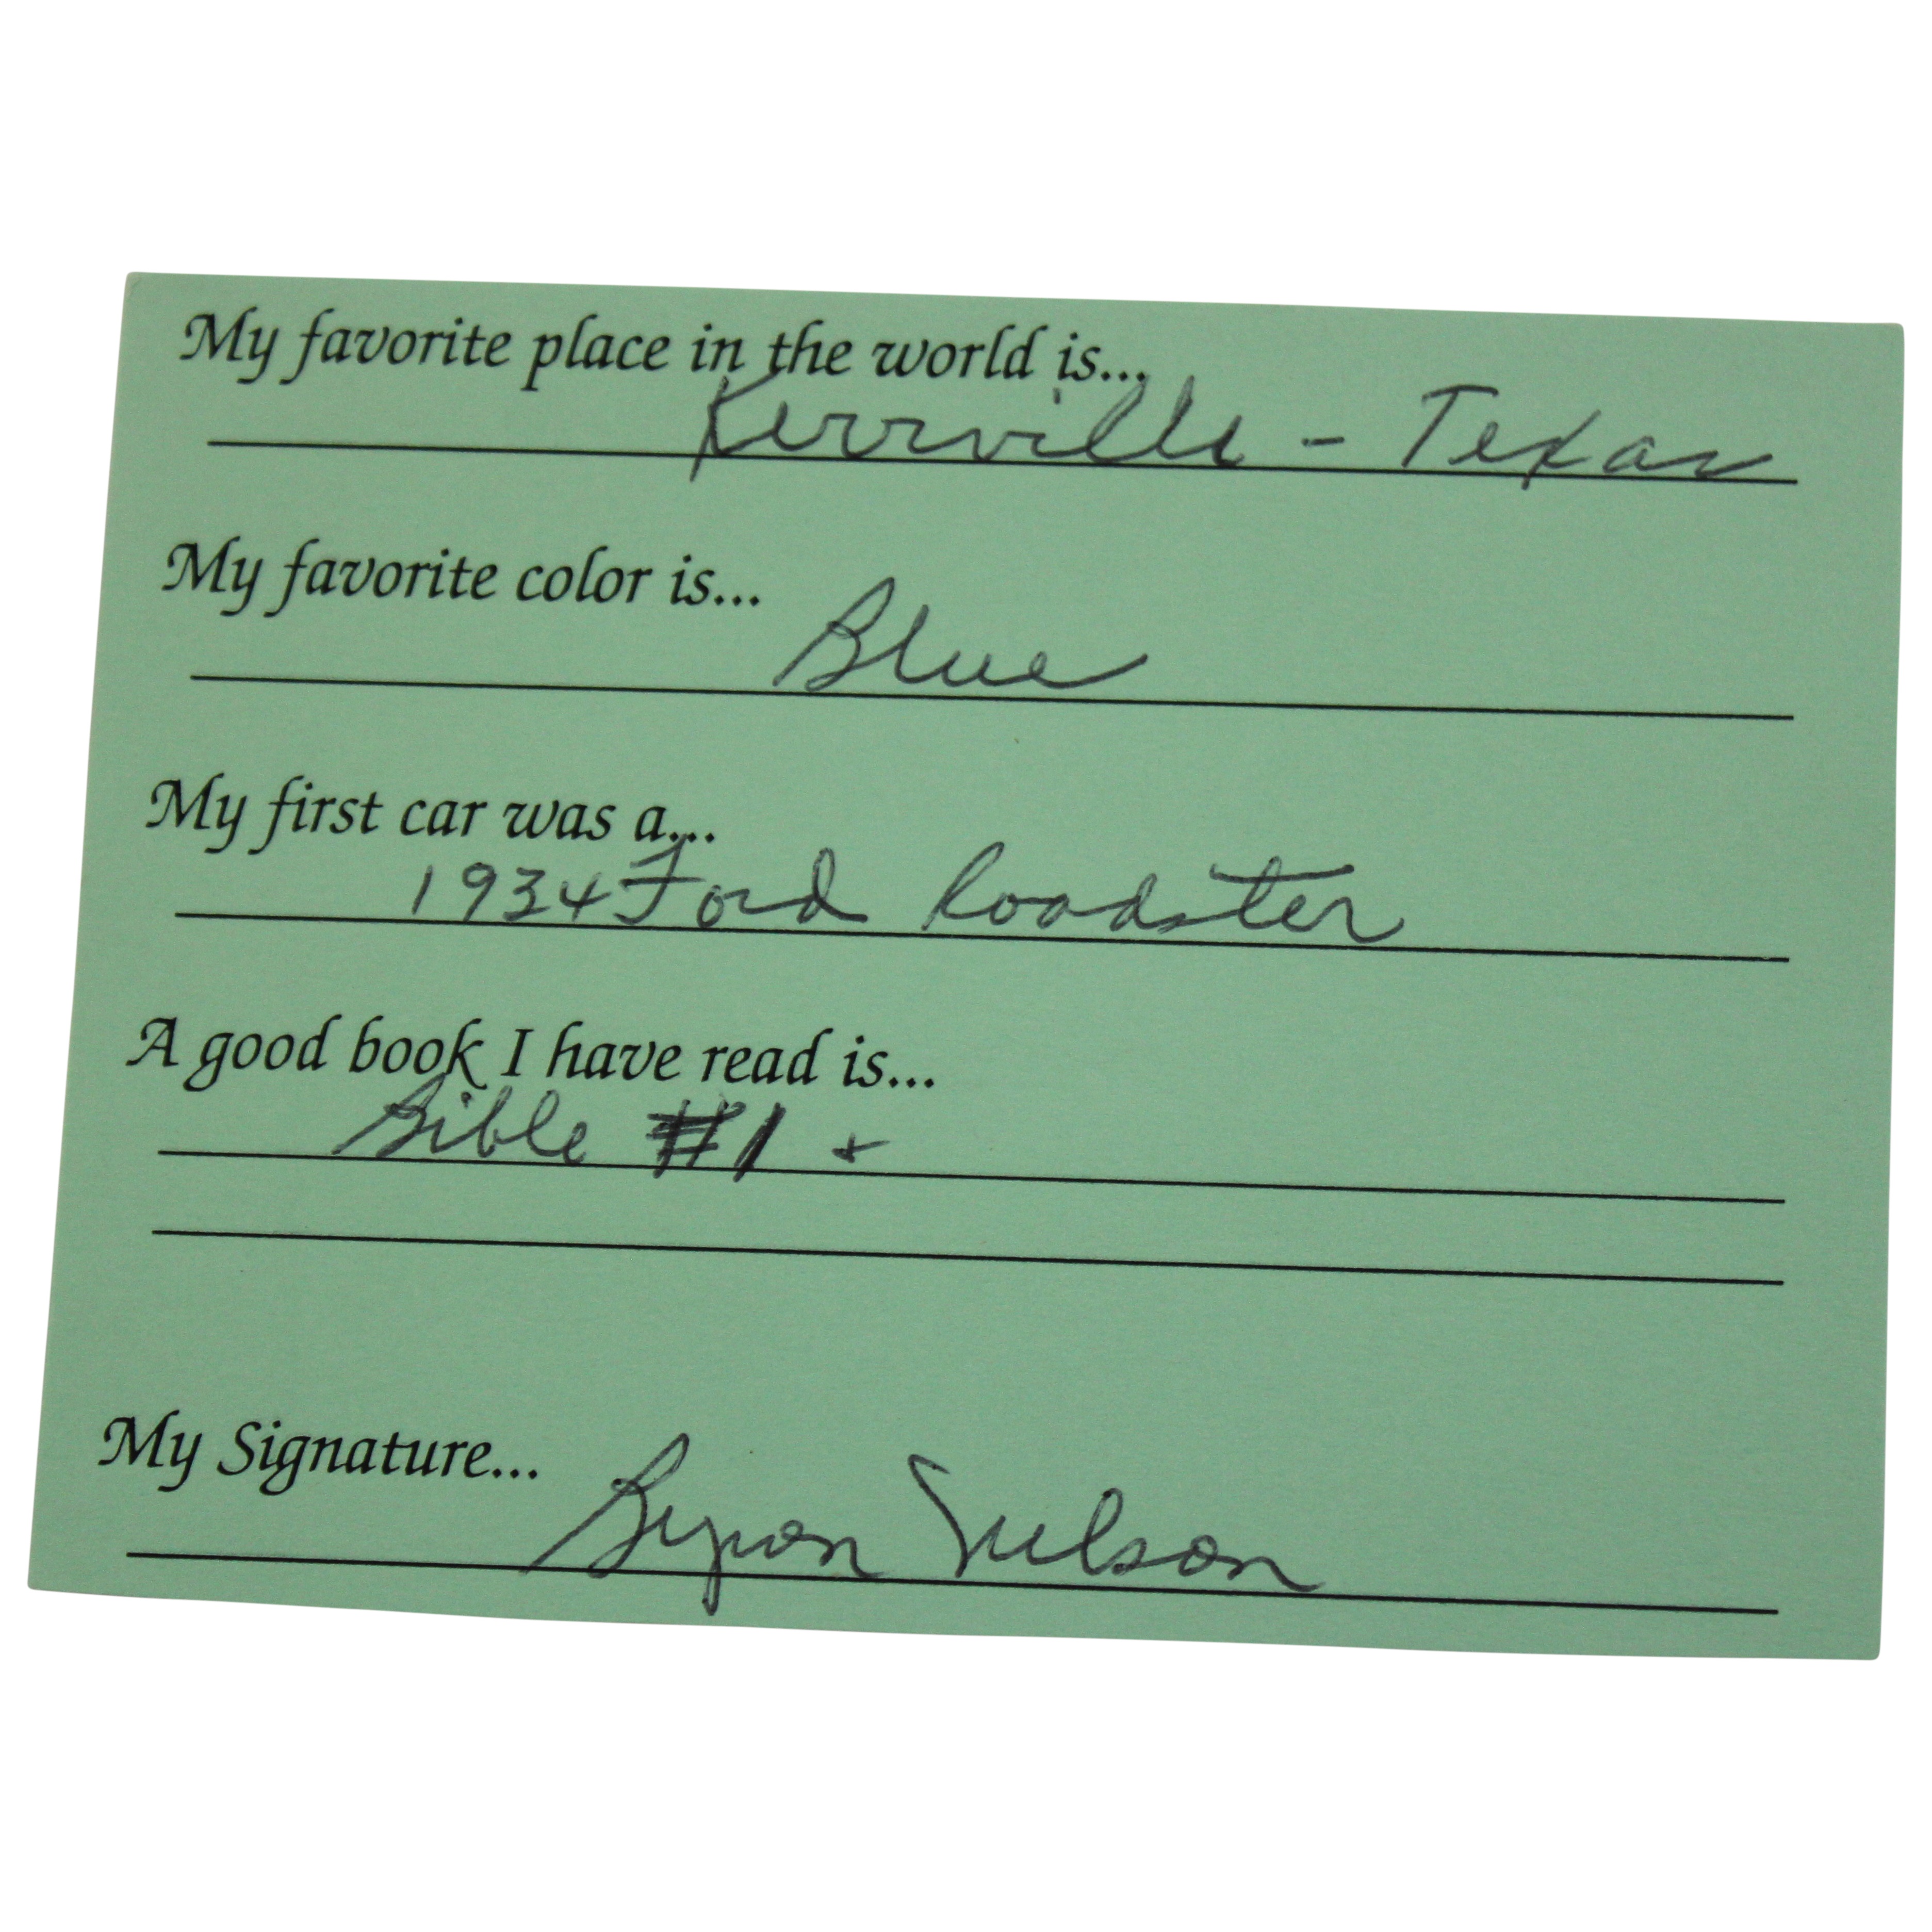 My favorite place in the world is...
Kerrville - Texas
My favorite color is...
Blue
My first car was a...
1934 Ford Roadster
A good book I have read is...
Bible #1 +
My Signature...
Byron Nelson